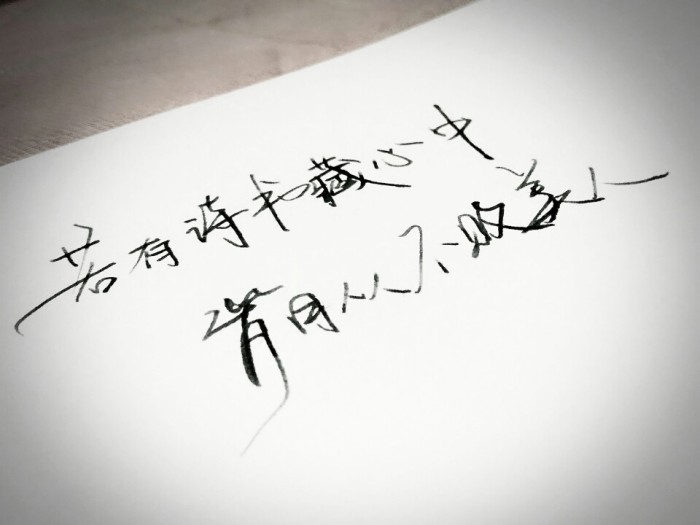 若有诗书藏心中
岁月从不败美人